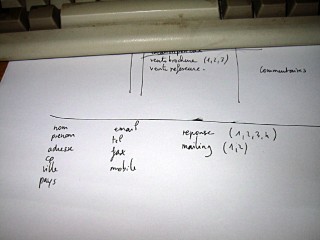 vente brochure (1,2,3)
vente reference.
Commentaires
nom
prenom
adresse
cp
ville
pays
email
tel
fax
mobile
reponse (1,2,3,4)
mailing (1,2)